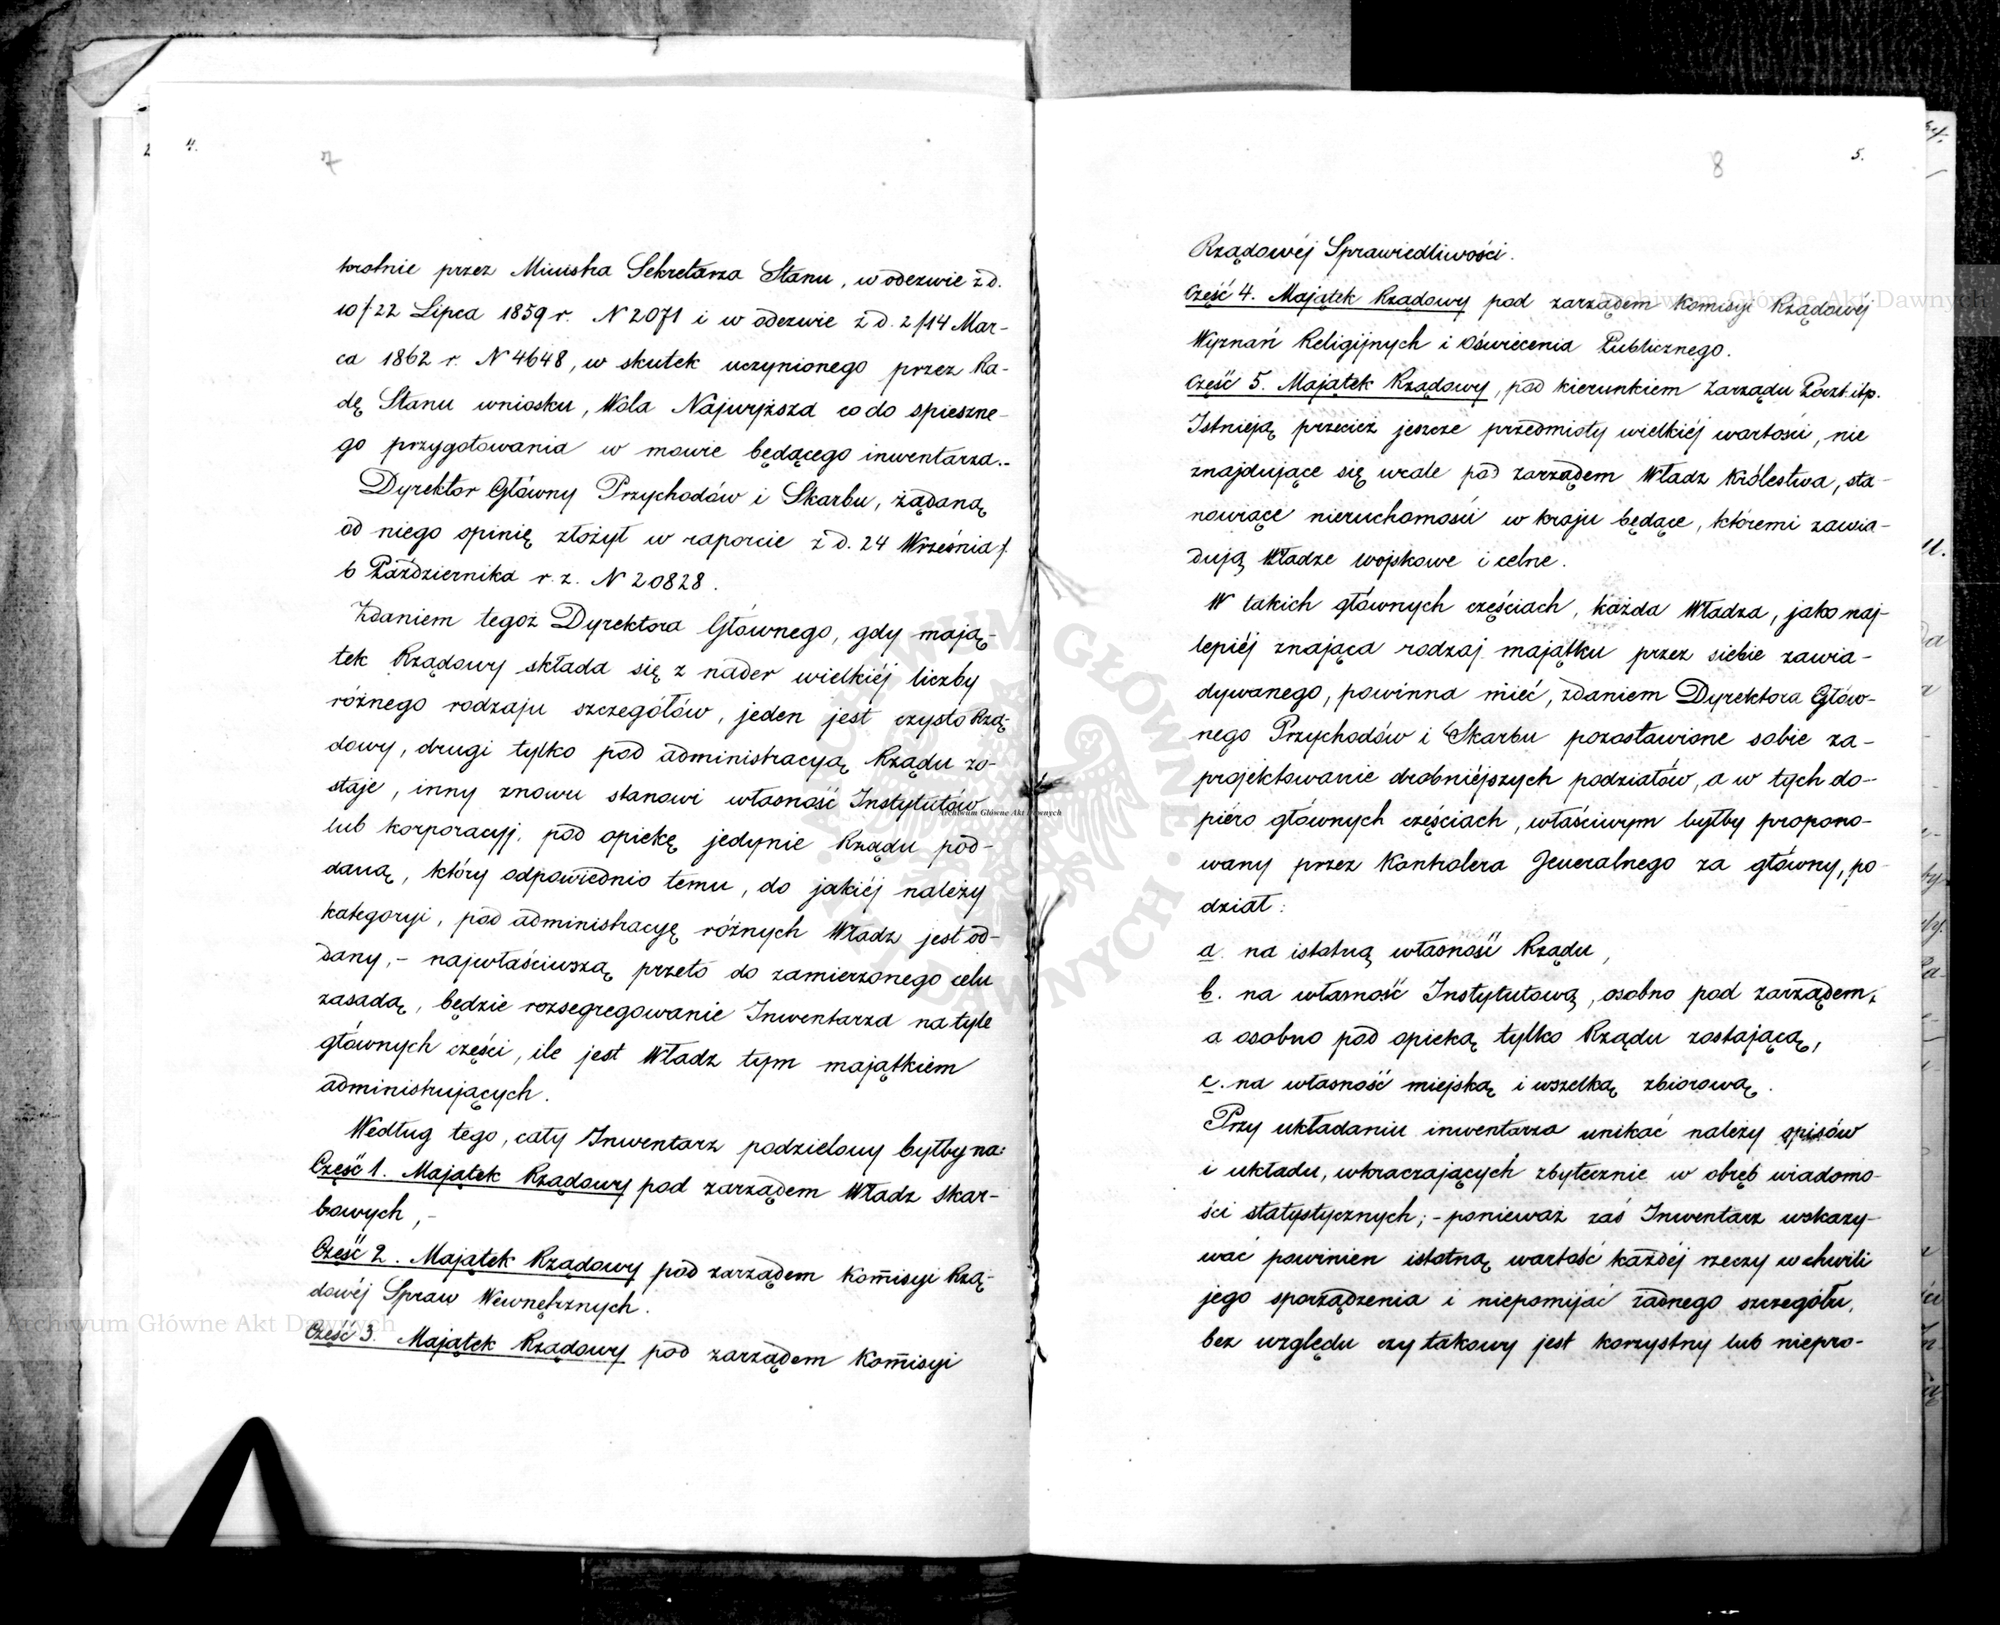 4.
7
krotnie przez Ministra Sekretarza Stanu, w odezwie z d.
10/22 Lipca 1859 r. N 2071 i w odezwie z d. 2/14 Mar-
ca 1862 r. N 4648, w skutek uczynionego przez Ra-
dę Stanu wniosku, Wola Najwyższa co do spieszne-
go przygotowania w mowie będącego inwentarza.-
Dyrektor Główny Przychodów i Skarbu, żądaną
od niego opinię złożył w raporcie z d. 24 Września /
6 Października r. z. N 20828.
Zdaniem tegoż Dyrektora Głównego, gdy mają-
tek Rządowy składa się z nader wielkiéj liczby
różnego rodzaju szczegółów, jeden jest czysto Rzą-
dowy, drugi tylko pod administracyą Rządu zo-
staje, inny znowu stanowi własność Instytutów
lub korporacyj, pod opiekę jedynie Rządu pod-
daną, który odpowiednio temu, do jakiéj należy
kategoryi, pod administracyę różnych Władz jest od-
dany,- najwłaściwszą przeto do zamierzonego celu
zasadą, będzie rozsegregowanie Inwentarza na tyle
głównych części, ile jest Władz tym majątkiem
administrujących.
Według tego, cały Inwentarz podzielony byłby na:
Część 1. Majątek Rządowy pod zarządem Władz Skar-
bowych,-
Część 2. Majątek Rządowy pod zarządem Kom̄isyi Rzą-
dowéj Spraw Wewnętrznych.
Część 3. Majątek Rządowy pod zarządem Kom̄isyi
8
5.
Rządowéj Sprawiedliwości.
Część 4. Majątek Rządowy pod zarządem Komisyi Rządowéj
Wyznań Religijnych i Oświecenia Publicznego.
Część 5. Majątek Rządowy, pod kierunkiem Zarządu Poczt itp.
Istnieją przecież jeszcze przedmioty wielkiéj wartości, nie
znajdujące się wcale pod zarządem Władz Królestwa, sta-
nowiące nieruchomości w kraju będące, któremi zawia-
dują Władze wojskowe i celne.
W takich głównych częściach, każda Władza, jako naj-
lepiéj znająca rodzaj majątku przez siebie zawia-
dywanego, powinna mieć, zdaniem Dyrektora Głów-
nego Przychodów i Skarbu pozostawione sobie za-
projektowanie drobniéjszych podziałów, a w tych do-
piéro głównych częściach, właściwym byłby propono-
wany przez Kontrolera Jeneralnego za główny, po-
dział:
a. na istotną własność Rządu,
b. na własność Instytutową, osobno pod zarządem,
a osobno pod opieką tylko Rządu zostającą,
c. na własność miejską i wszelką zbiorową.
Przy układaniu inwentarza unikać należy opisów
i układu, wkraczających zbytecznie w obręb wiadomo-
ści statystycznych; - ponieważ zaś Inwentarz wskazy-
wać powinien istotną wartość każdéj rzeczy w chwili
jego sporządzenia i niepomijać żadnego szczegółu,
bez względu czy takowy jest korzystny lub niepro-
Archiwum Główne Akt Dawnych
Archiwum Główne Akt Dawnych
Archiwum Główne Akt Dawnych
ARCHIWUM GŁÓWNE AKT DAWNYCH